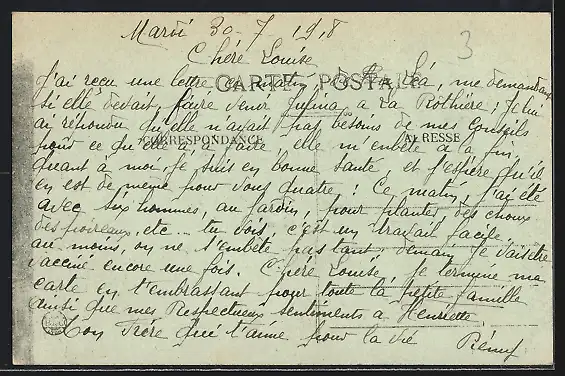 Mardi 30-7 1918
Chéré Louise
J'ai reçu une lettre ce matin, de Léa, me demandant
CARTE POSTALE
si elle devait faire venir a La Rothière; Je lui
ai répondu qu'elle n'avait pas besoins de mes Conseils
CORRESPONDANCE ADRESSE
pour ce qu'elle a à faire, elle m'enbête a la fin,
quant à moi, Je suis en bonne santé et J'espère qu'il
en est de même pour vous quatre; Ce matin, J'ai été
avec six hommes, au Jardin, pour planter des choux
des poireaux, etc... tu vois, c'est un travail facile,
au moins, on ne s'embête pas tant, demain Je vais être
vacciné encore une fois. Chéré Louise, Je termine ma
carte en t'embrassant pour toute la petite famille
ainsi que mes Respectueux sentiments a Henriette
Ton Frère qui t'aime pour la vie Rémy